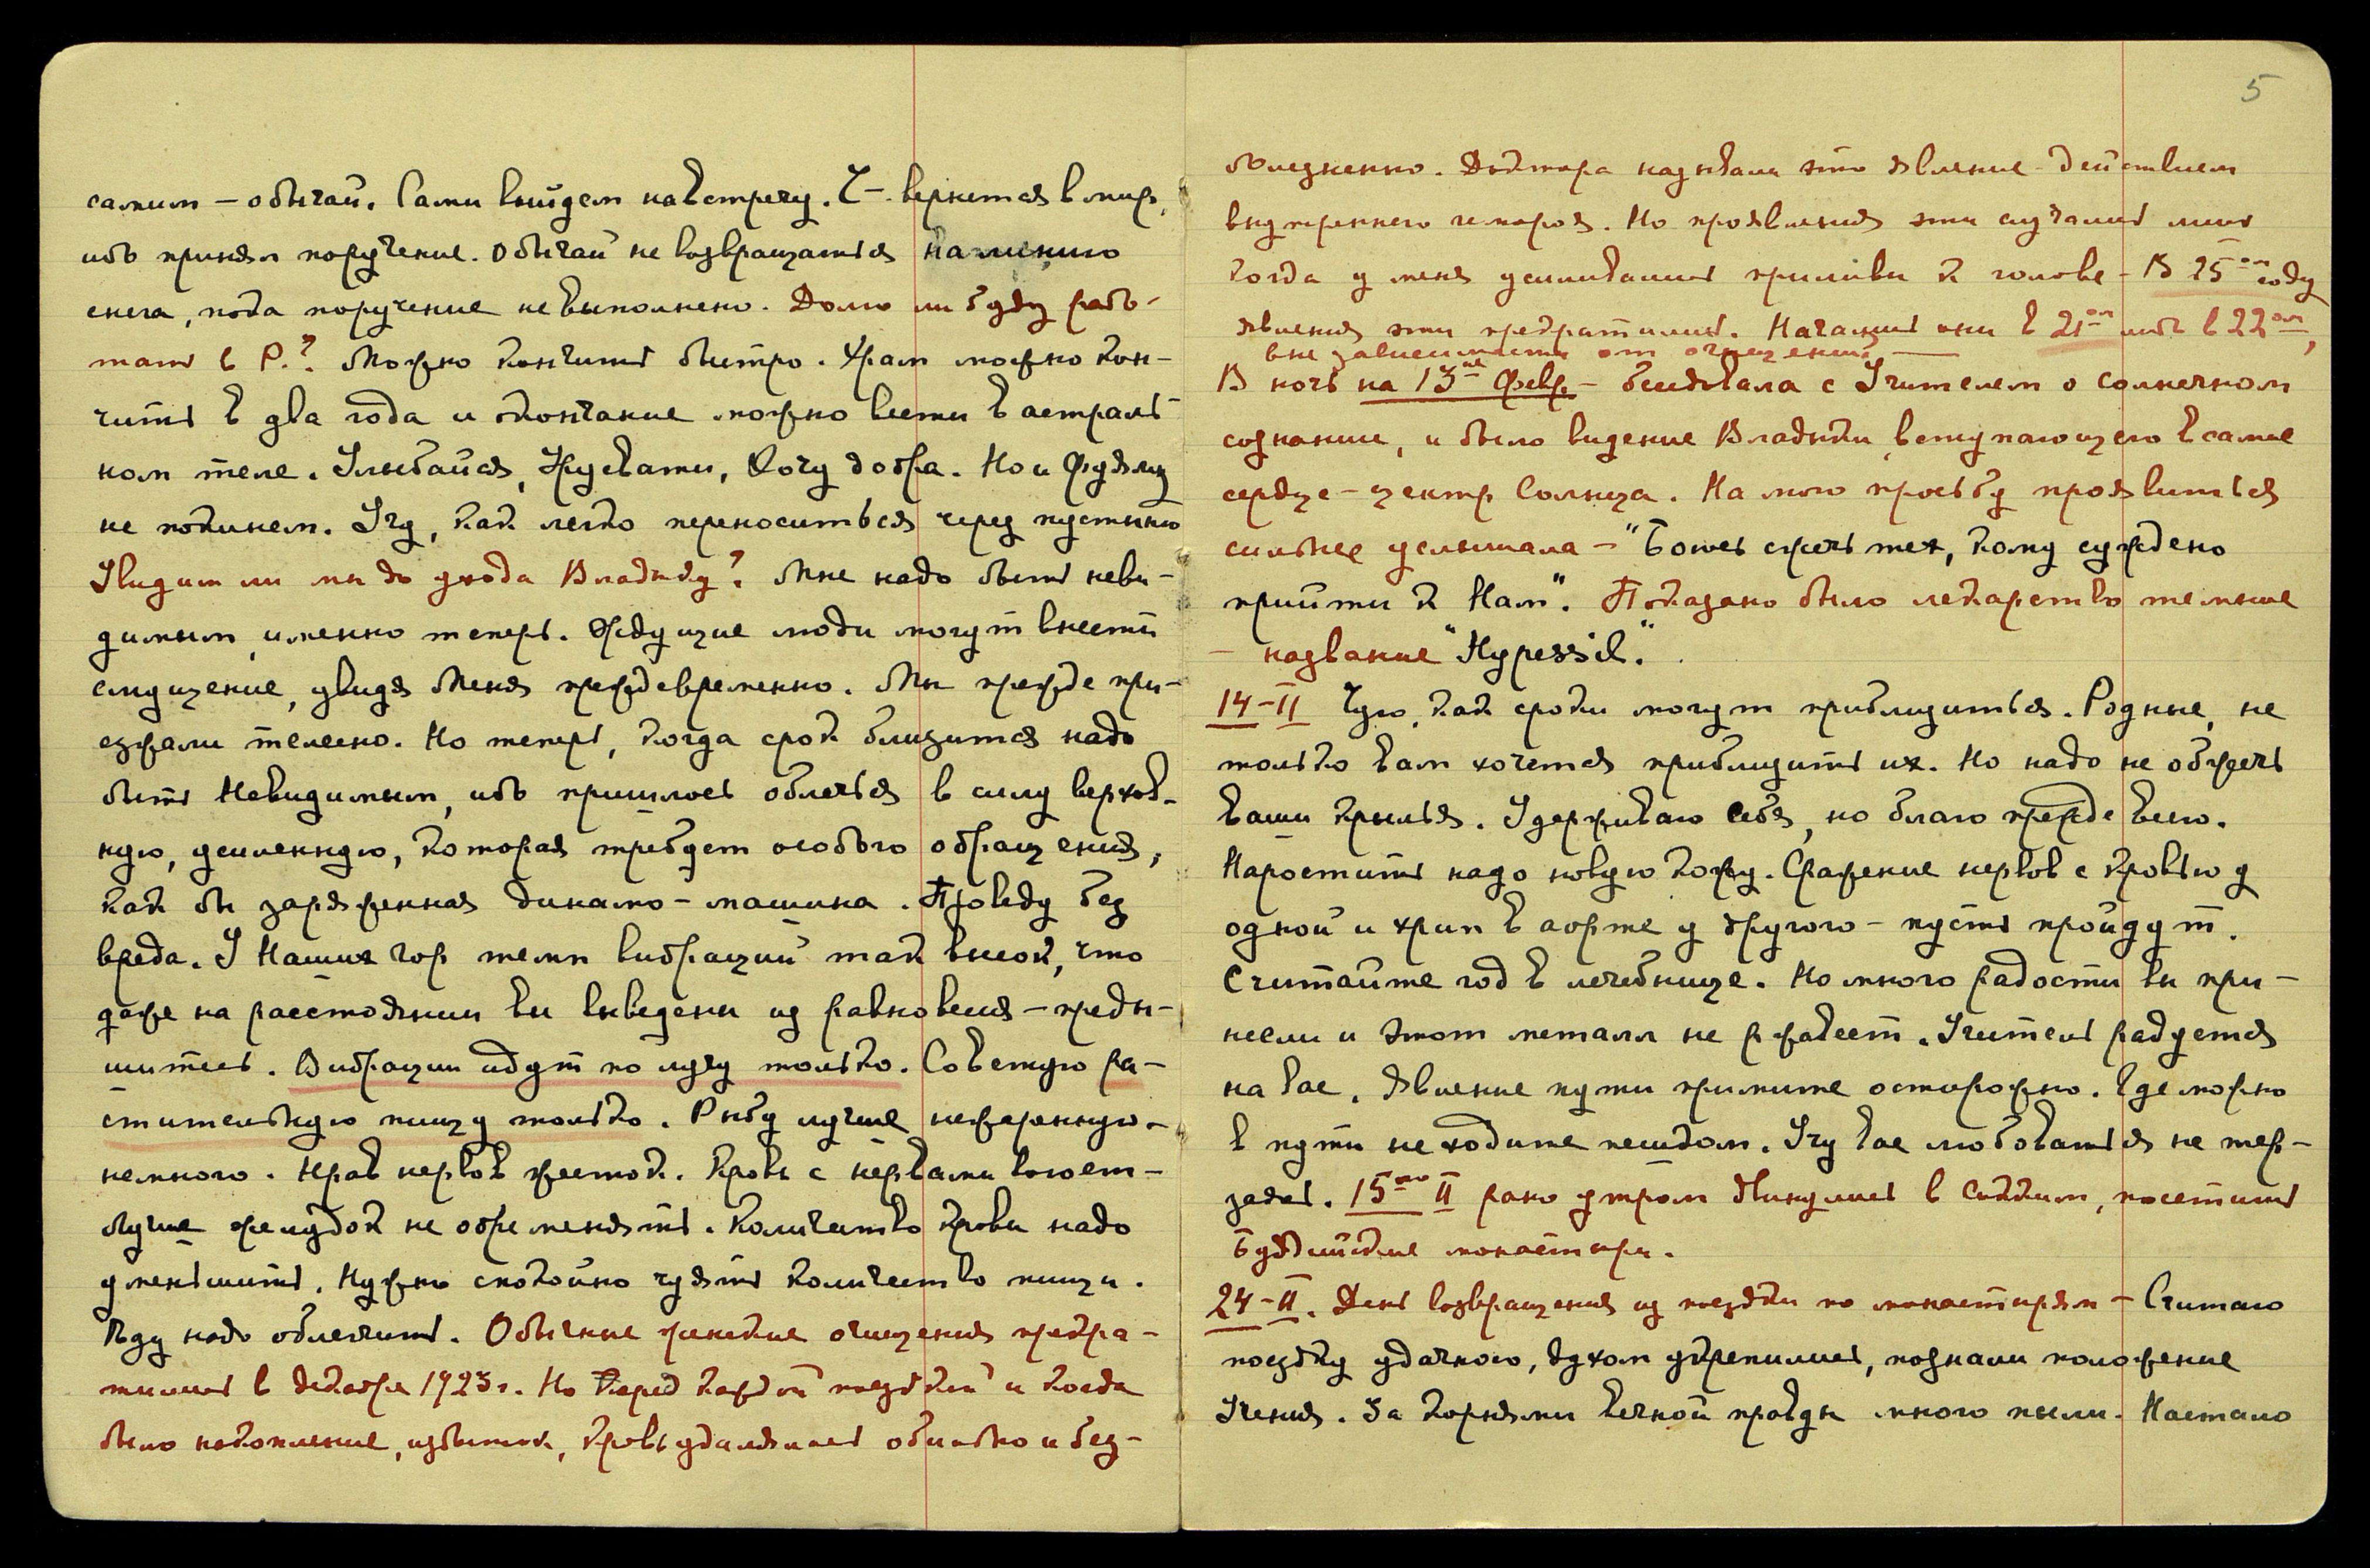 самим — обычай. Сами выйдем навстречу. Ч — вернется в мир,
ибо принял поручение. Обычай не возвращаться
снега, пока поручение не выполнено. Долго ли буду рабо-
тать в Р.? Можно кончить быстро. Храм можно кон-
чить в два года и окончание можно вести в астраль-
ном теле. Улыбайся, Урусвати, Хочу добра. Но и Фуяму
не покинем. Учу, как легко переноситься через пустыню
Увидим ли мы до ухода Владыку? Мне надо быть неви-
димым, именно теперь. Ждущие люди могут внести
смущение, увидя Меня преждевременно. Мы прежде при-
езжали телесно. Но теперь, когда срок близится надо
быть Невидимым, ибо пришлось облечься в силу верхов-
ную, усиленную, которая требует особого обращения,
как бы заряженная динамо-машина. Проведу без
вреда. У Наших гор темп вибраций так высок, что
даже на расстоянии вы выведены из равновесия — преды-
шитесь. Вибрации идут по лучу только. Советую ра-
стительную пищу только. Рыбу лучше нежеренную -
немного. Нрав нервов жесток. Кровь с нервами воюет —
Лучше желудок не обременять. Количество крови надо
уменьшить. Нужно спокойно чуять количество пищи.
Еду надо облегчить. Обычные женские очищения прекра-
тились в декабре 1923 г. Но перед каждой поездкой и когда
было накопление, избыток, кровь удалялась обильно и без-
5
болезненно. Доктора называли это явление действием
внутреннего геморроя. Но проявления эти случались лишь
когда у меня усиливались приливы к голове — В 25ом году
явления эти прекратились. Начались они в 21ом либо в 22ом,
вне зависимости от очищений —
В ночь на 13ое Февр. — беседовала с Учителем о солнечном
сознании, и было видение Владыки, вступающего в самое
сердце — центр Солнца. На мою просьбу проявиться
сильнее услышала — "Боюсь сжечь тех, кому суждено
прийти к Нам". Показано было лекарство темное
— название "Hypessil."
14–II Чую, как сроки могут приблизиться. Родные, не
только вам хочется приблизить их. Но надо не обжечь
ваши крылья. Удерживаю Себя, но благо прежде всего.
Наростить надо новую кожу. Сражение нервов с кровью у
одной и хрип в аорте у другого — пусть пройдут.
Считайте год в лечебнице. Но много радости вы при-
несли и этот металл не ржавеет. Учитель радуется
на вас. Явление пути примите осторожно. Где можно
в пути не ходите пешком. Учу вас любоваться не тер-
заясь. 15го II рано утром двинулись в Сикким, посетить
Буддийские монастыри.
24–II. День возвращения из поездки по монастырям — Считаю
поездку удачною, духом укрепились, познали положение
Учения. За корнями вечной правды много пыли. Настало